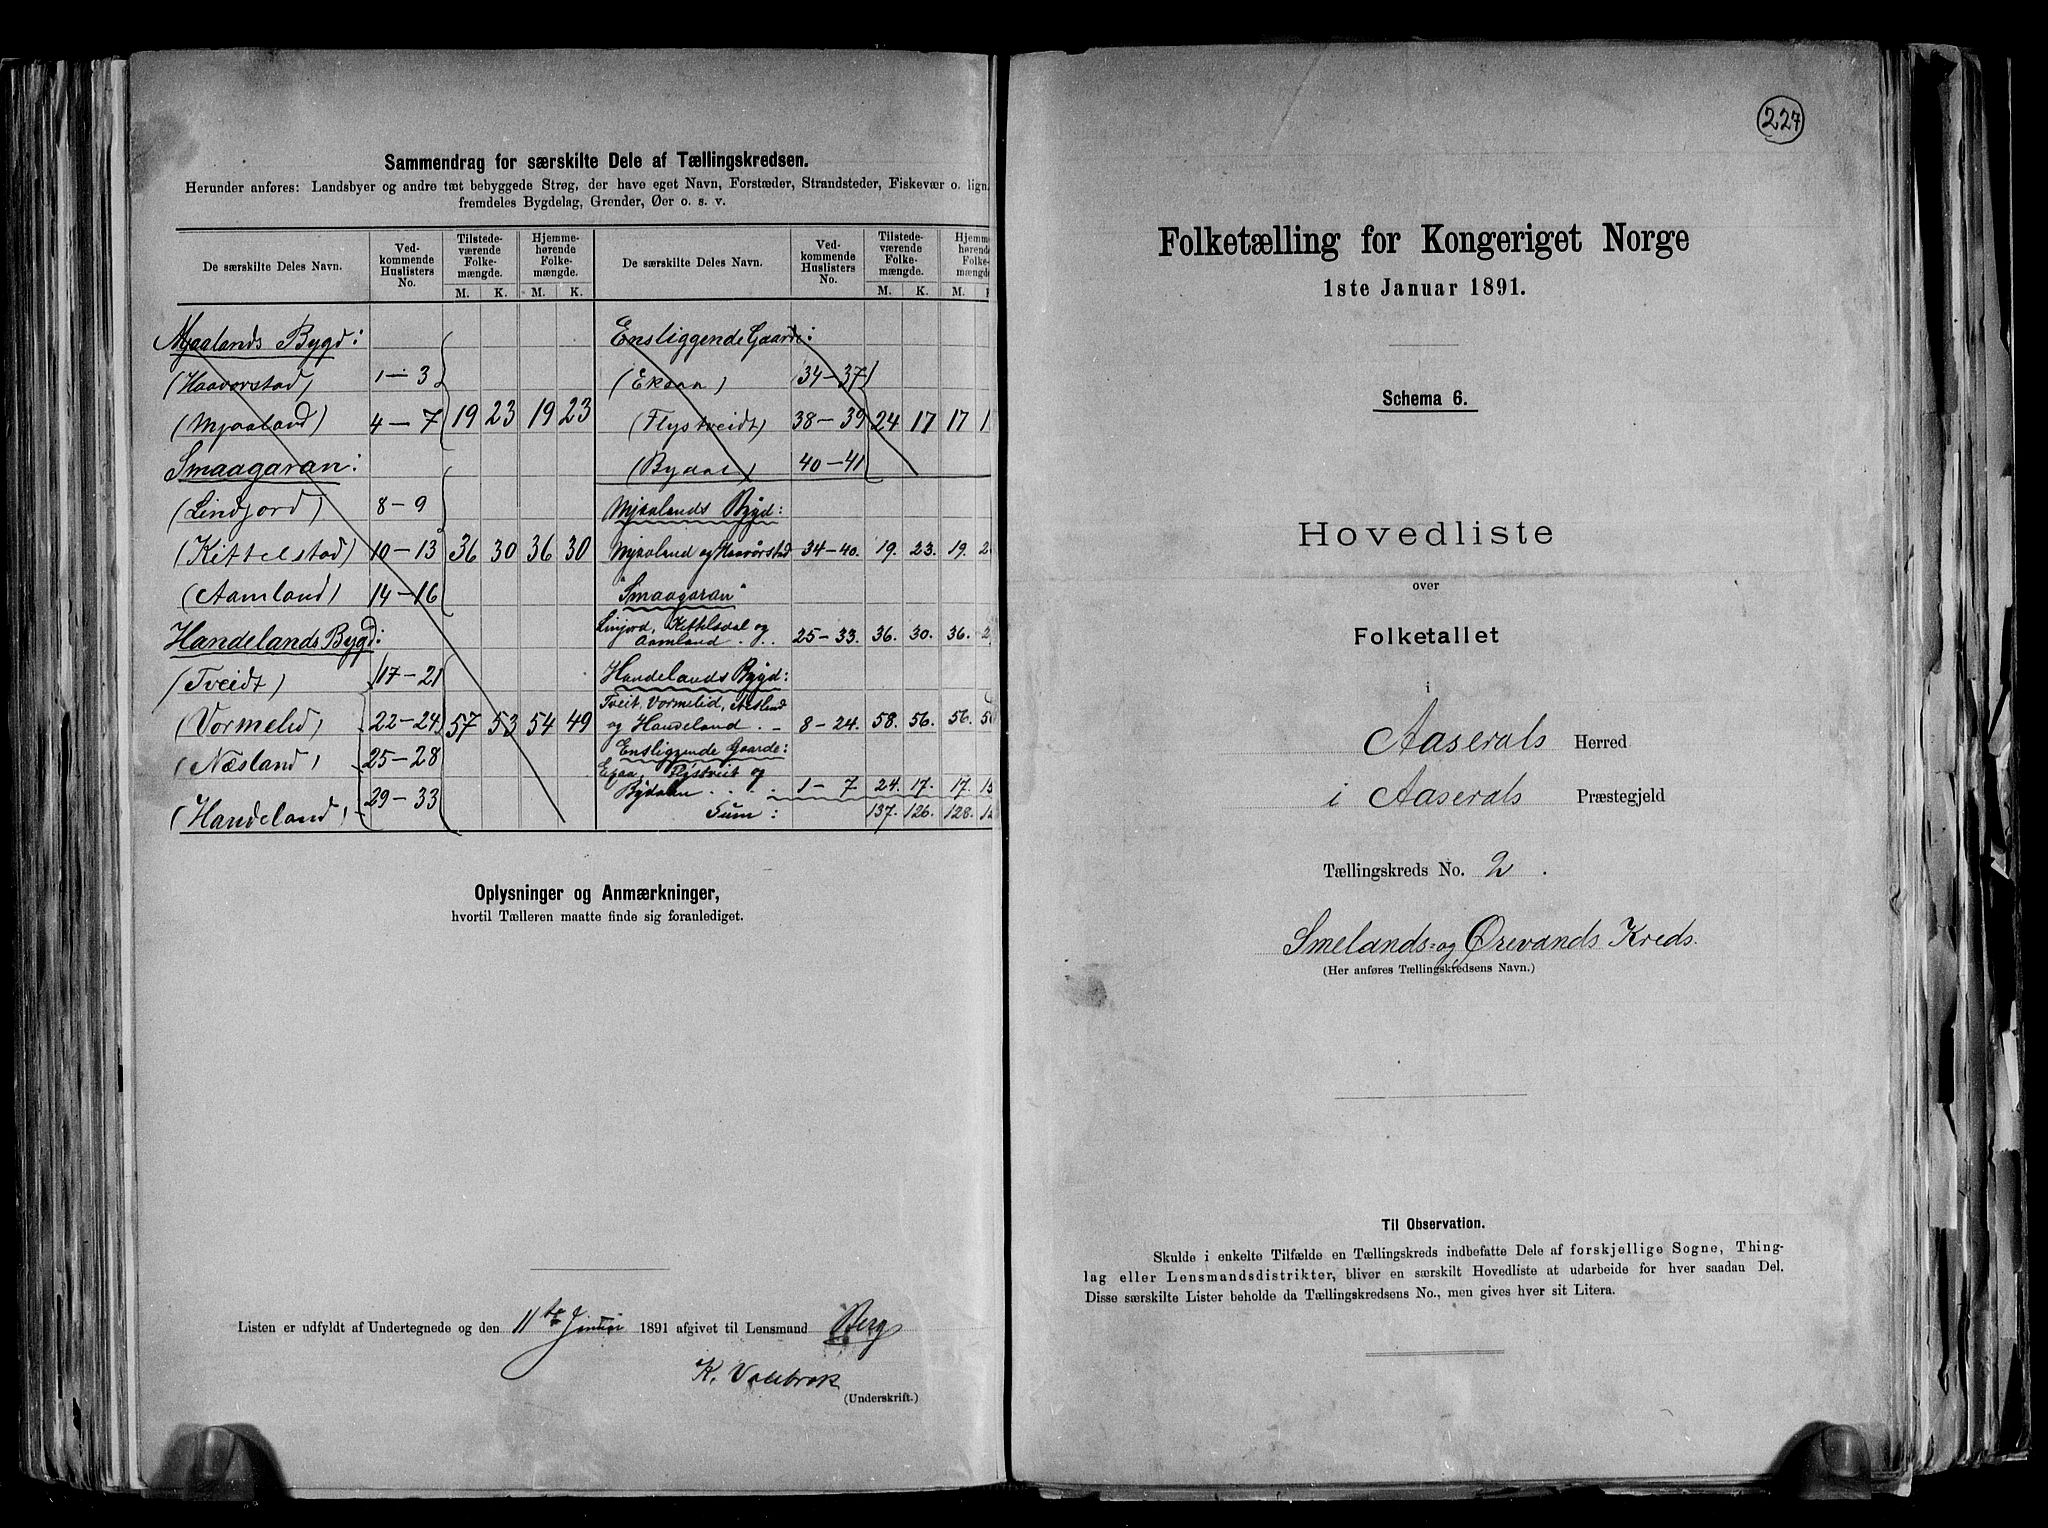 Sammendrag for særskilte Dele af Tællingskredsen.
Herunder anføres: Landsbyer og andre tæt bebyggede Strøg, der have eget Navn, Forstæder, Strandsteder, Fiskevær o. lign.
fremdeles Bygdelag, Grender, Øer o. s. v.
De særskilte Deles Navn. Ved-kommende Huslisters No. Tilstede-værende Folke-mængde. Hjemme-hørende Folke-mængde. De særskilte Deles Navn. Ved-kommende Huslisters No. Tilstede-værende Folke-mængde. Hjemme-hørende Folke-mængde
M. K. M. K. M. K. M.
Mjaalands Bygd:
(Haavorstad) 1-3
(Mjaaland) 4-7 19 23 19 23
Smaagaran:
(Lindjord) 8-9
(Kittelstad) 10-13 36 30 36 30
(Aamland) 14-16
Handelands Bygd:
(Tveidt) 17-21
(Vormelid) 22-24 57 53 54 49
(Næsland) 25-28
(Handeland) 29-33
Ensliggende Gaarde:
(Ekaaa) 34-37
(Flystveidt) 38-39 24 17 17
(Bydal) 40-41
Mjaalands Bygd:
Mjaaland og Haavørstad 34-40. 19. 23. 19.
"Smaagaran"
Linjord, Kittelsdal og
Aamland . . . 25-33. 36. 30. 36.
Handelands Bygd:
Tveit, Vormelid,
og Handeland . - 8-24. 58. 56. 56.
Ensliggende Gaarde:
Flystveit og
Bydalen . . . 1-7 24. 17. 17.
Sum: 137. 126. 128.
Oplysninger og Anmærkninger,
hvortil Tælleren maatte finde sig foranlediget.
Listen er udfyldt af Undertegnede og den 11te Januar 1891 afgivet til Lensmand Berg
K.
(Underskrift.)
227
Folketælling for Kongeriget Norge
1ste Januar 1891.
Schema 6.
Hovedliste
over
Folketallet
i
Aaserals Herred
i Aaserals Præstegjeld
Tællingskreds No. 2.
Smelands- og Ørevands Kreds.
(Her anføres Tællingskredsens Navn.)
Til Observation.
Skulde i enkelte Tilfælde en Tællingskreds indbefatte Dele af forskjellige Sogne, Thing-
lag eller Lensmandsdistrikter, bliver en særskilt Hovedliste at udarbeide for hver saadan Del.
Disse særskilte Lister beholde da Tællingskredsens No., men gives hver sit Litera.